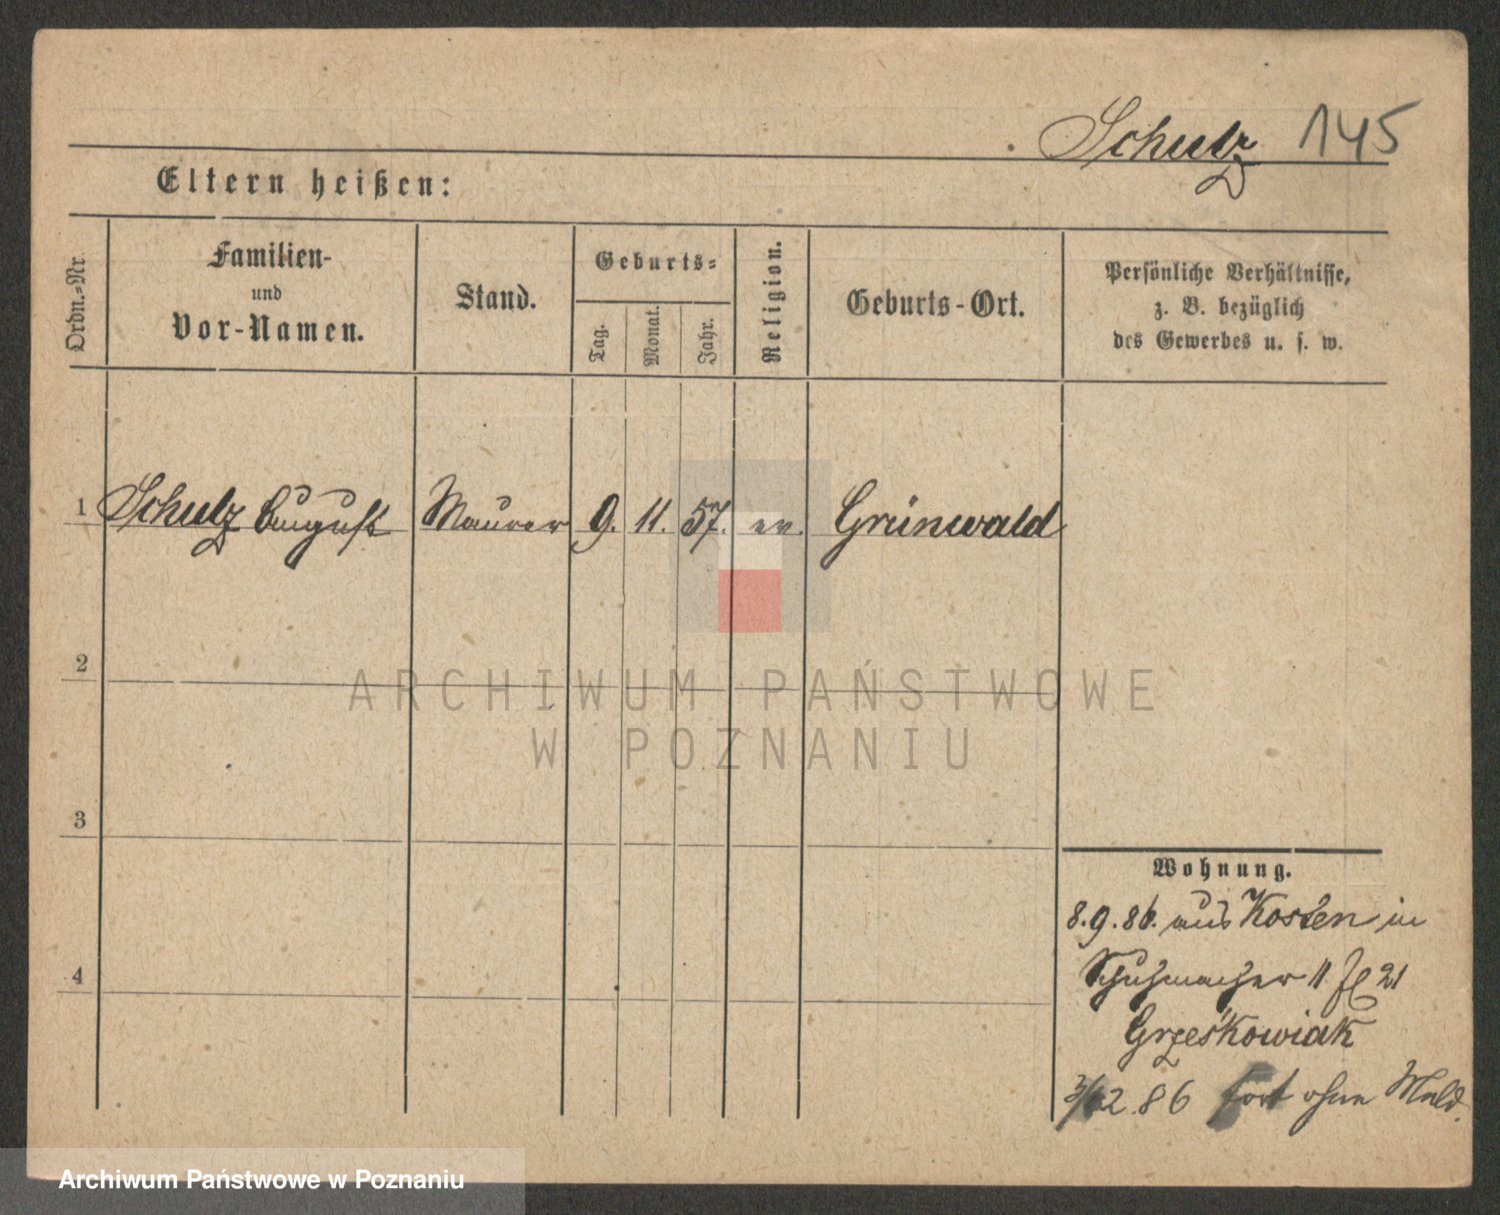 Schulz 145
Eltern heißen:
Ordn.-Nr.
Familien-
und
Vor-Namen.
Stand.
Geburts-
Tag.
Monat.
Jahr.
Religion.
Geburts-Ort.
Persönliche Verhältnisse,
z. B. bezüglich
des Gewerbes u. s. w.
1 Schulz August Maurer 9. 11. 57. ev. Grünwald
2
ARCHIWUM PAŃSTWOWE
W POZNANIU
3
Wohnung.
8.9.86. aus Kosten in
Schuhmacher 11 21
4
Grześkowiak
12.86 fort ohne Meld.
Archiwum Państwowe w Poznaniu